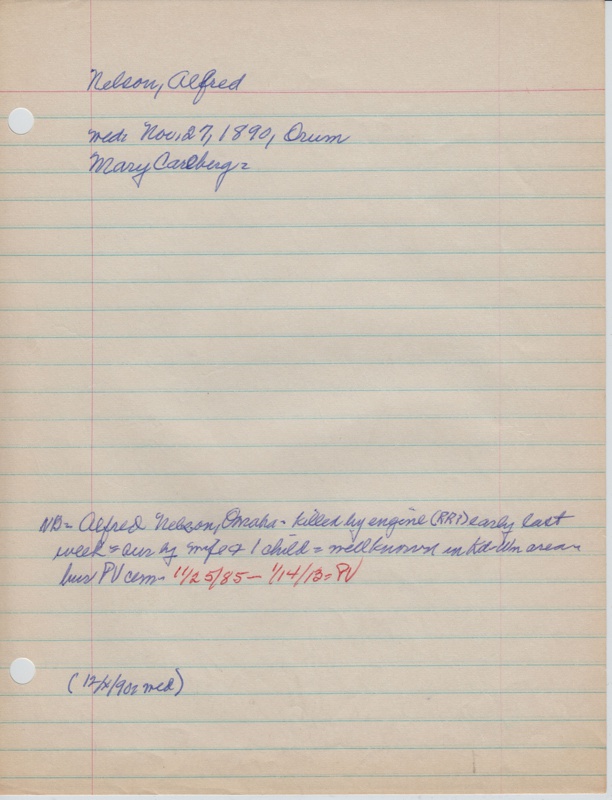 Nelson, Alfred
wed: Nov. 27, 1890, Orum
Mary Carlberg =
NB = Alfred Nelson, Omaha - killed by engine (RR?) early last
week = sur by wife & 1 child = well known in Kd-Wn area =
bur PV cem - 11/25/85 - 1/14/13 = PV
(12/4/90: wed)